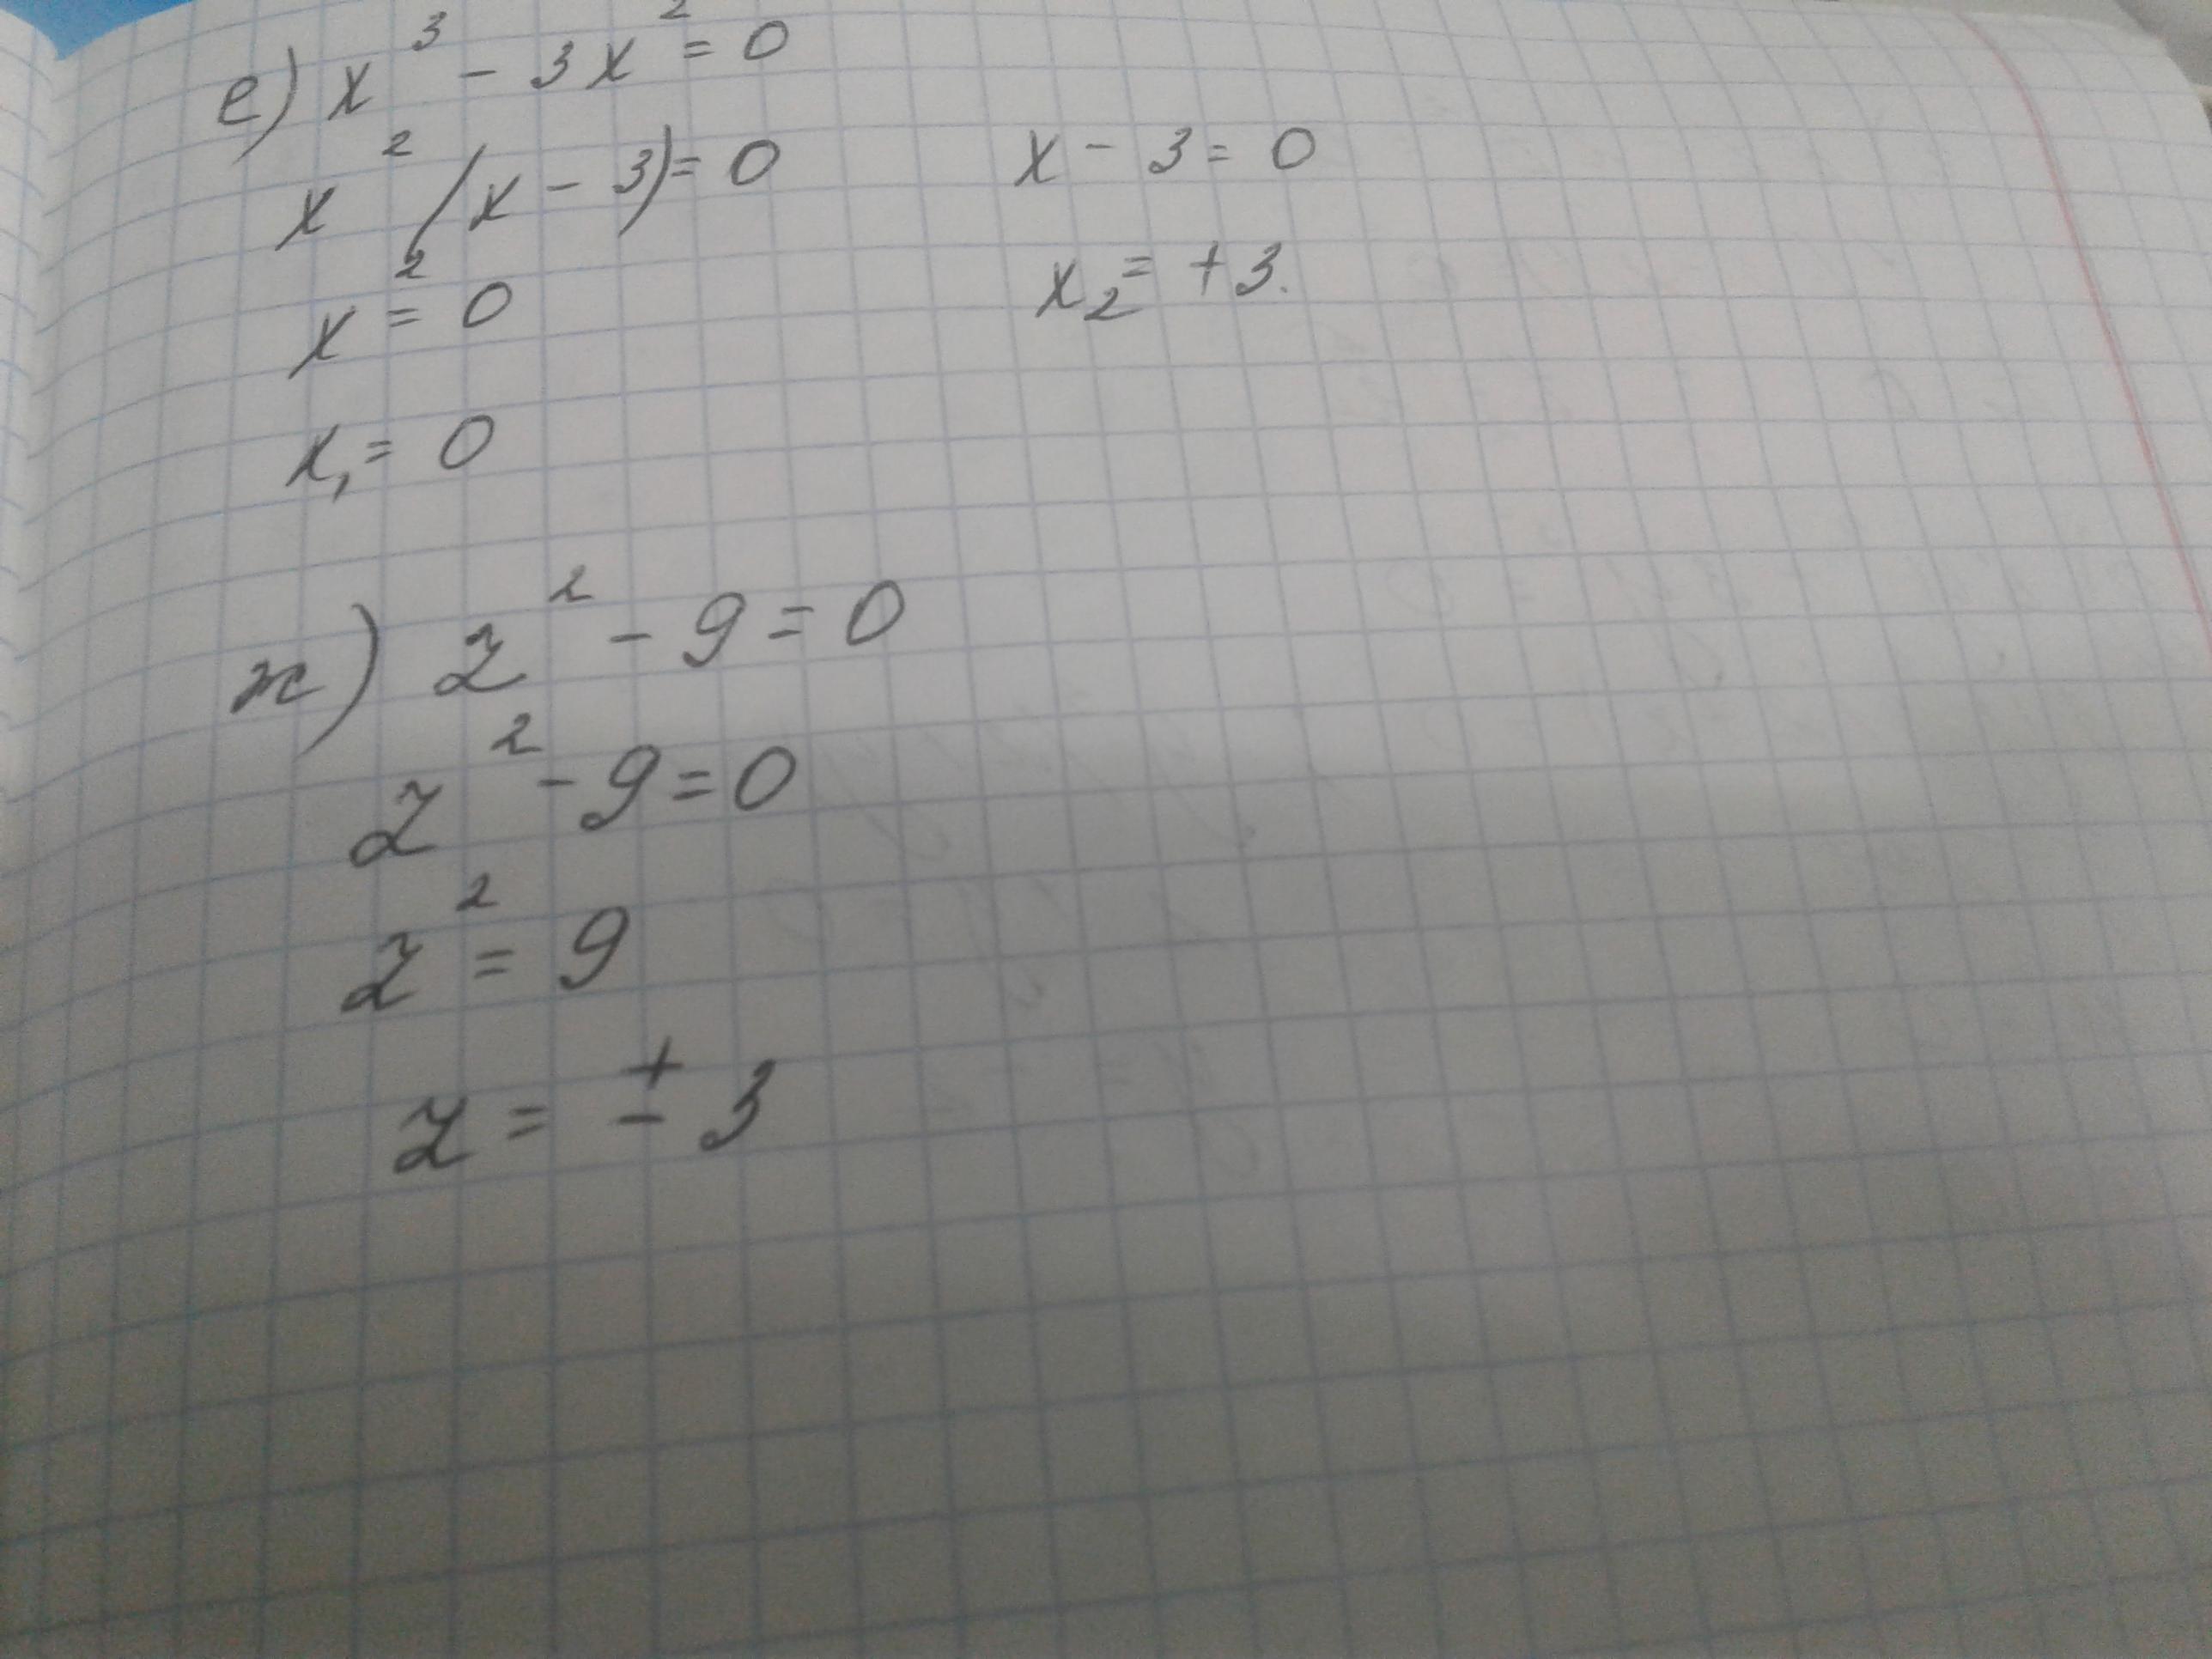 е) x³ - 3x² = 0
x² (x - 3) = 0
x² = 0
x₁ = 0
x - 3 = 0
x₂ = + 3.
ж) z² - 9 = 0
z² - 9 = 0
z² = 9
z = ± 3